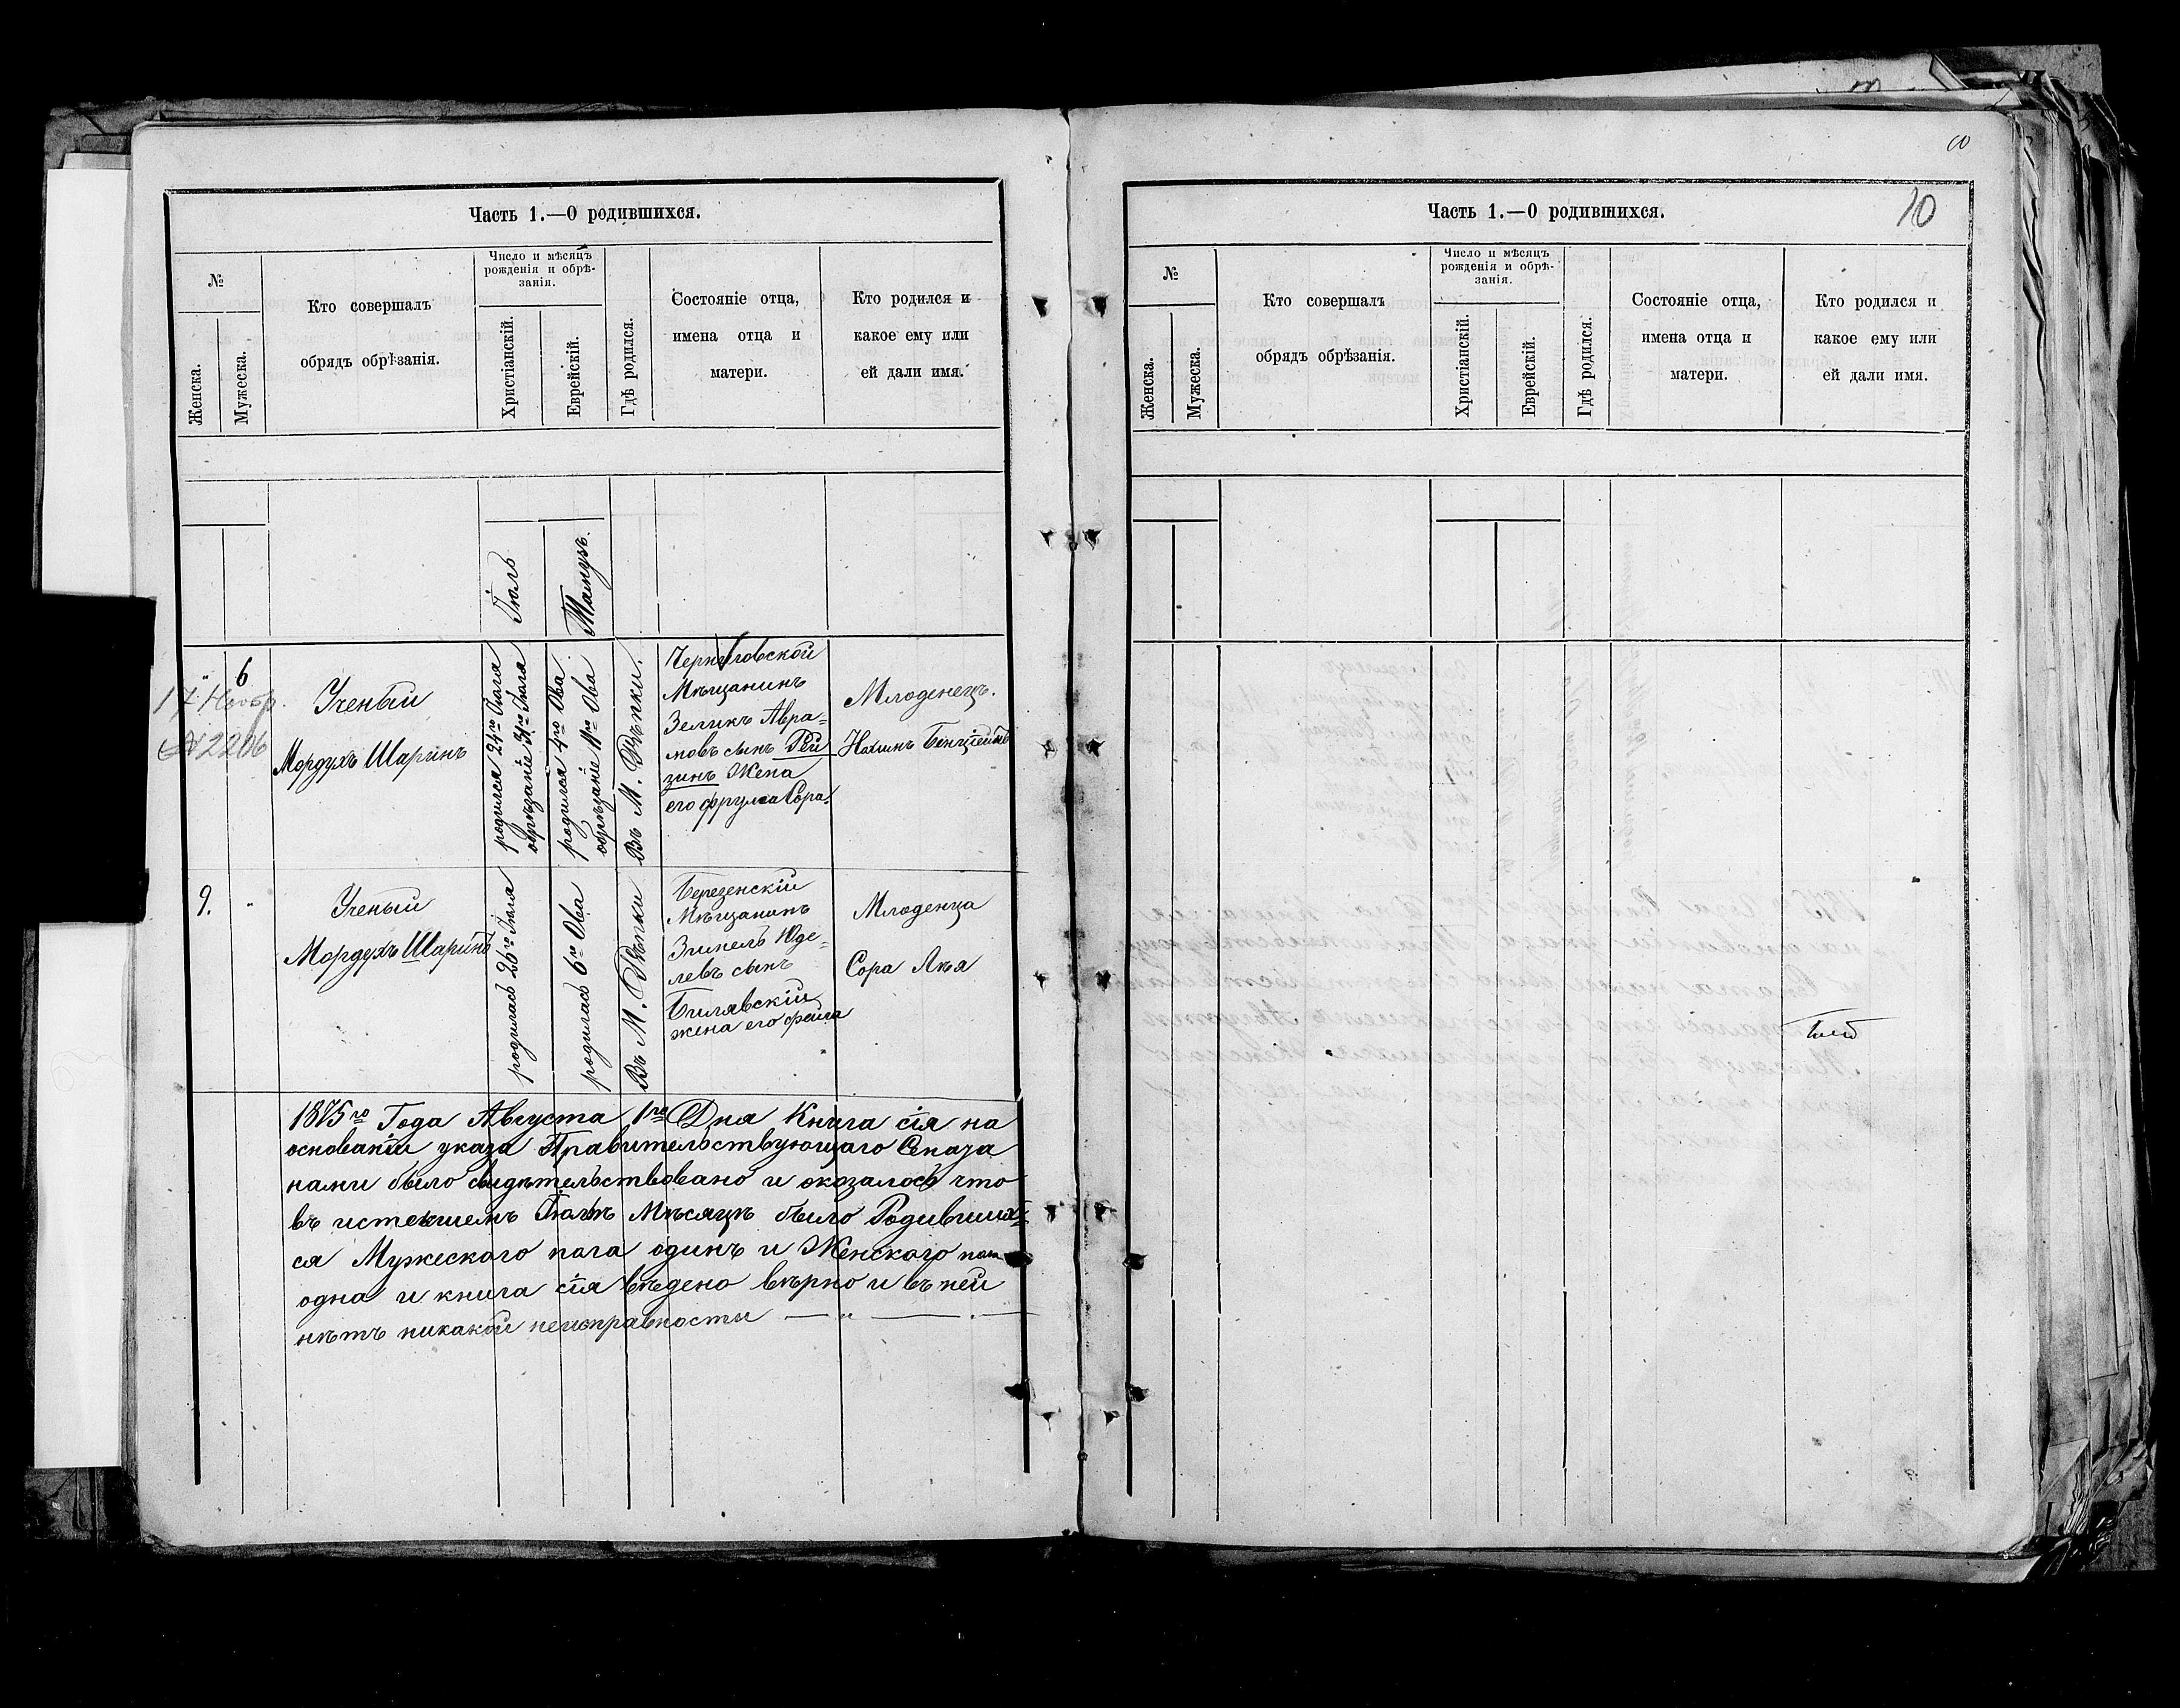 Часть 1.—О родившихся.
№
Женска.
Мужеска.
Кто совершалъ
обрядъ обрѣзанія.
Число и мѣсяцъ
рожденія и обрѣ-
занія.
Христіанскій.
Еврейскій.
Гдѣ родился.
Состояніе отца,
имена отца и
матери.
Кто родился и
какое ему или
ей дали имя.
Іюль
Тамузъ.
6
17 Ноябр.
№ 2206
Ученый
Мордухъ Шаринъ
родился 24го Іюля
обрѣзаніе 31го Іюля
родился 4го Ова
обрѣзаніе 11го Ова
Въ М. Рѣпки.
Черниговской
Мѣщанинъ
Зеликъ Авра=
мовъ сынъ Рей
зинъ Жена
его Фрума Сора.
Младенецъ.
Нохимъ
9.
Ученый
Мордухъ Шаринъ
родилась 26го Іюля
родилась 6го Ова
Въ М. Рѣпки
Березенскій
Мѣщанинъ
Зимель Юде=
левъ сынъ
Билявскій
жена его Фейга
Младенца
Сора Лея
1875го Года Августа 1го Дня Книга сія на
основаніи указа Правительствующаго Сената
нами было свидѣтельствовано и оказалось что
въ истекшемъ Іюлѣ Мѣсяцѣ было Родивших=
ся Мужескаго пола одинъ и Женскаго пола
одна и книга сія вѣдено вѣрно и въ ней
нѣтъ никакой неисправности — „ — . —
10
Часть 1.—О родившихся.
№
Женска.
Мужеска.
Кто совершалъ
обрядъ обрѣзанія.
Число и мѣсяцъ
рожденія и обрѣ-
занія.
Христіанскій.
Еврейскій.
Гдѣ родился.
Состояніе отца,
имена отца и
матери.
Кто родился и
какое ему или
ей дали имя.